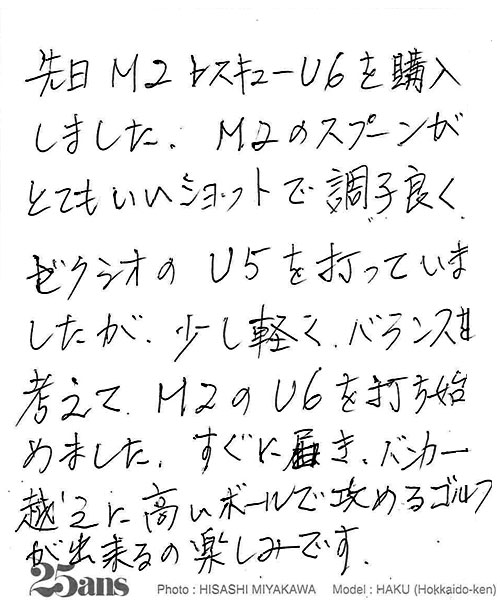 先日 M2 レスキューU6を購入
しました。M2のスプーンが
とてもいいショットで調子良く、
ゼクシオの U5を打っていま
したが、少し軽く、バランスを
考えて、M2のU6を打ち始
めました。すぐに届き、バンカー
越えに高いボールで攻めるゴルフ
が出来るの楽しみです。
25ans Photo : HISASHI MIYAKAWA Model : HAKU (Hokkaido-ken)